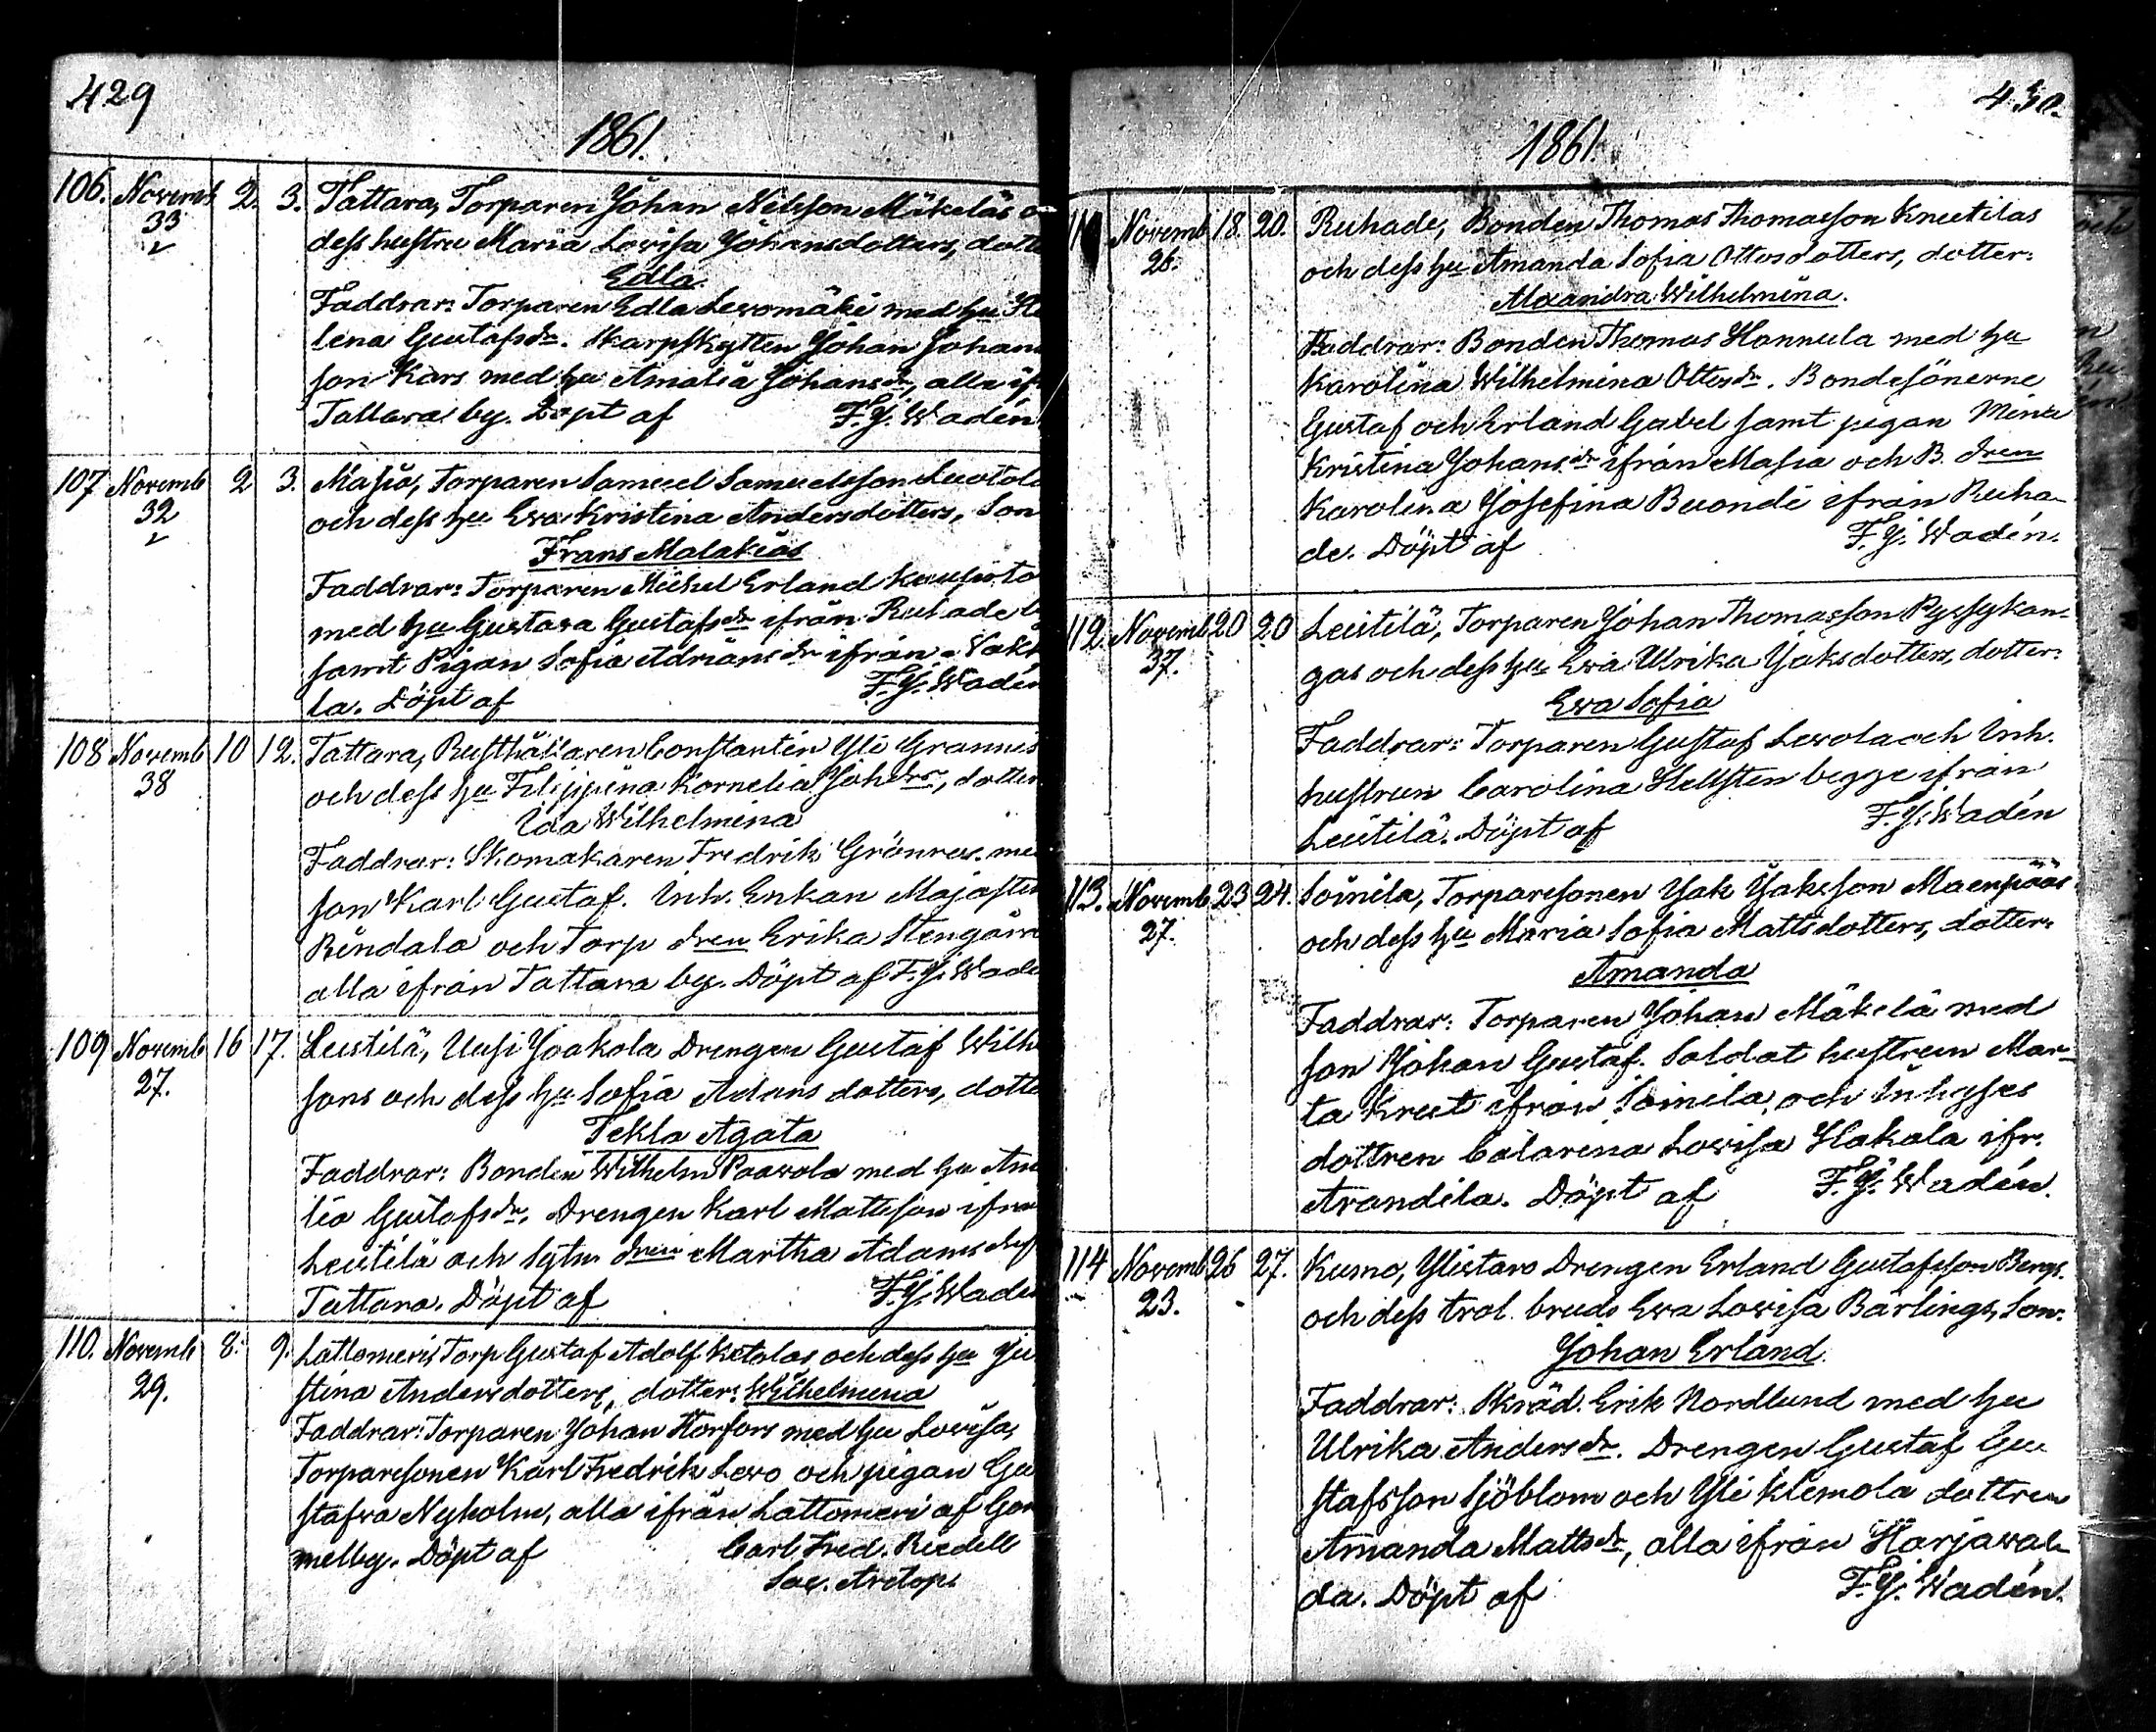 429
1861.
106. Novemb 2. 3. Tattara, Torparen Johan Nilsson Mäkeläs o
33 dess hustru Maria Lovisa Johansdotters, dotte
Edla.
Faddrar: Torparen Edla Lewomäki med hu He
lena Gustafsdr. Skarpskytten Johan Johans
son Kars med hu Amalia Johansdr, alla ifr
Tattara by. Döpt af F. J. Wadén
107 Novemb 2 3. Masia, Torparen Samuel Samuelsson
32 och dess hu Ewa Kristina Andersdotters, Son
Frans Malakias
Faddrar: Torparen Mickel Erland
med hu Gustava Gustafsdr ifrån Ruhade b
samt Pigan Sofia Adriansdr ifrån
la. Döpt af F. J. Wadén
108 Novemb 10 12. Tattara, Rusthållaren Constantin Yli Grannis
38 och dess hu Filippina Kornelia Joh dr, dotter
Ida Wilhelmina
Faddrar: Skomakaren Fredrik Grönroos me
son Karl Gustaf. Inh. Enkan Maja
Rindala och Torp dren Erika
alla ifrån Tattara by. Döpt af F. J. Wadé
109 Novemb 16 17. Leistilä, Uusi Jaakola Drengen Gustaf Wilh
27. sons och dess hu Sofia Adams dotters, dotte
Tekla Agata
Faddrar: Bonden Wilhelm Paavola med hu Ama
lia Gustafsdr, Drengen Karl Mattsson ifrå
Leistilä och Sytn. dren Martha Adams
Tattara. Döpt af F. J. Wadé
110. Novemb 8. 9. Lattomeri, Torp Gustaf Adolf Ketolas och dess hu Ju
29. stina Andersdotters, dotter: Wilhelmina
Faddrar: Torparen Johan Horfors med hu Lovisa,
Torparesonen Karl Fredrik Levo och pigan Gu
stafva Nyholm, alla ifrån Lattomeri af Gam
melby. Döpt af Carl Fred. Riedell
430.
1861.
Novemb 18. 20. Ruhade, Bonden Thomas Thomasson Knuutilas
26. och dess hu Amanda Sofia Ottosdotters, dotter:
Alexandra Wilhelmina.
Faddrar: Bonden Thomas Hannula med hu
Karolina Wilhelmina Ottosdr. Bondesönerne
Gustaf och Erland Gabel samt pigan Mina
Kristina Johansdr ifrån Masia och B. dren
Karolina Josefina Buondi ifrån Ruha-
de. Döpt af F. J. Wadén.
112. Novemb 20 20 Leistilä, Torparen Johan Thomasson Pyssykan-
37. gas och dess hu Ewa Ulrika Jaksdotters, dotter:
Ewa Sofia
Faddrar: Torparen Gustaf Levola och Inh.
hustrun Carolina Hellsten begge ifrån
Leistilä. Döpt af F. J. Wadén
113. Novemb 23 24. Soinila, Torparesonen Jak Jaksson Maenpääs
27. och dess hu Maria Sofia Mattsdotters, dotter:
Amanda
Faddrar: Torparen Johan Mäkelä med
son Johan Gustaf. Soldat hustrun Mar-
ta Krut ifrån Soinila, och Inhyses
dottren Catarina Lovisa Hakala ifr.
Arandila. Döpt af F. J. Wadén.
114 Novemb 26 27. Kurno, Ylistaro Drengen Erland Gustafsson Bergs.
23. och dess trol. bruds Ewa Lovisa Bärlings, Son:
Johan Erland.
Faddrar: Skräd. Erik Nordlund med hu
Ulrika Andersdr. Drengen Gustaf Gu
stafsson Sjöblom och Yli Klemola dottren
Amanda Mattsdr, alla ifrån Harjawal-
da. Döpt af F. J. Wadén.